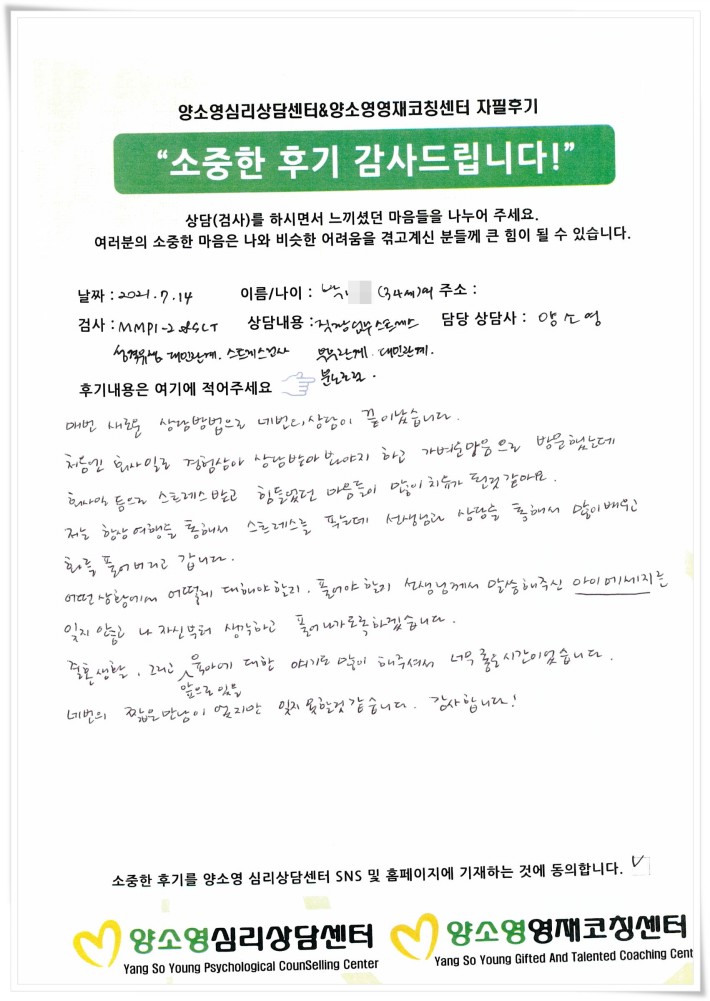 양소영심리상담센터&양소영영재코칭센터 자필후기
“소중한 후기 감사드립니다!”
상담(검사)를 하시면서 느끼셨던 마음들을 나누어 주세요.
여러분의 소중한 마음은 나와 비슷한 어려움을 겪고계신 분들께 큰 힘이 될 수 있습니다.
날짜 : 2021. 7. 14 이름/나이 : 박 (34세)여 주소 :
검사 : MMPI-2 SCT 상담내용 : 직장업무스트레스 담당 상담사 : 양소영
성격유형 대인관계. 스트레스검사 부부관계. 대인관계.
분노조절.
후기내용은 여기에 적어주세요
매번 새로운 상담방법으로 네번의 상담이 끝이났습니다.
처음엔 회사일로 경험삼아 상담받아 봐야지 하고 가벼운마음으로 방문했는데
회사일 등으로 스트레스받고 힘들었던 마음들이 많이 치유가 된것 같아요.
저는 항상 여행을 통해서 스트레스를 푸는데 선생님과 상담을 통해서 많이배우고
화를 풀어버리고 갑니다.
어떤상황에서 어떻게 대해야할지, 풀어야 할지 선생님께서 말씀해주신 아이메세지를
잊지 않고 나 자신부터 생각하고 풀어나가도록하겠습니다.
결혼생활, 그리고 육아에 대한 얘기도 많이 해주셔서 너무 좋은시간이었습니다.
앞으로 있을
네번의 짧은만남이었지만 잊지 못할것 같습니다. 감사합니다!
소중한 후기를 양소영 심리상담센터 SNS 및 홈페이지에 기재하는 것에 동의합니다. ✓
양소영심리상담센터 양소영영재코칭센터
Yang So Young Psychological CounSelling Center Yang So Young Gifted And Talented Coaching Cent